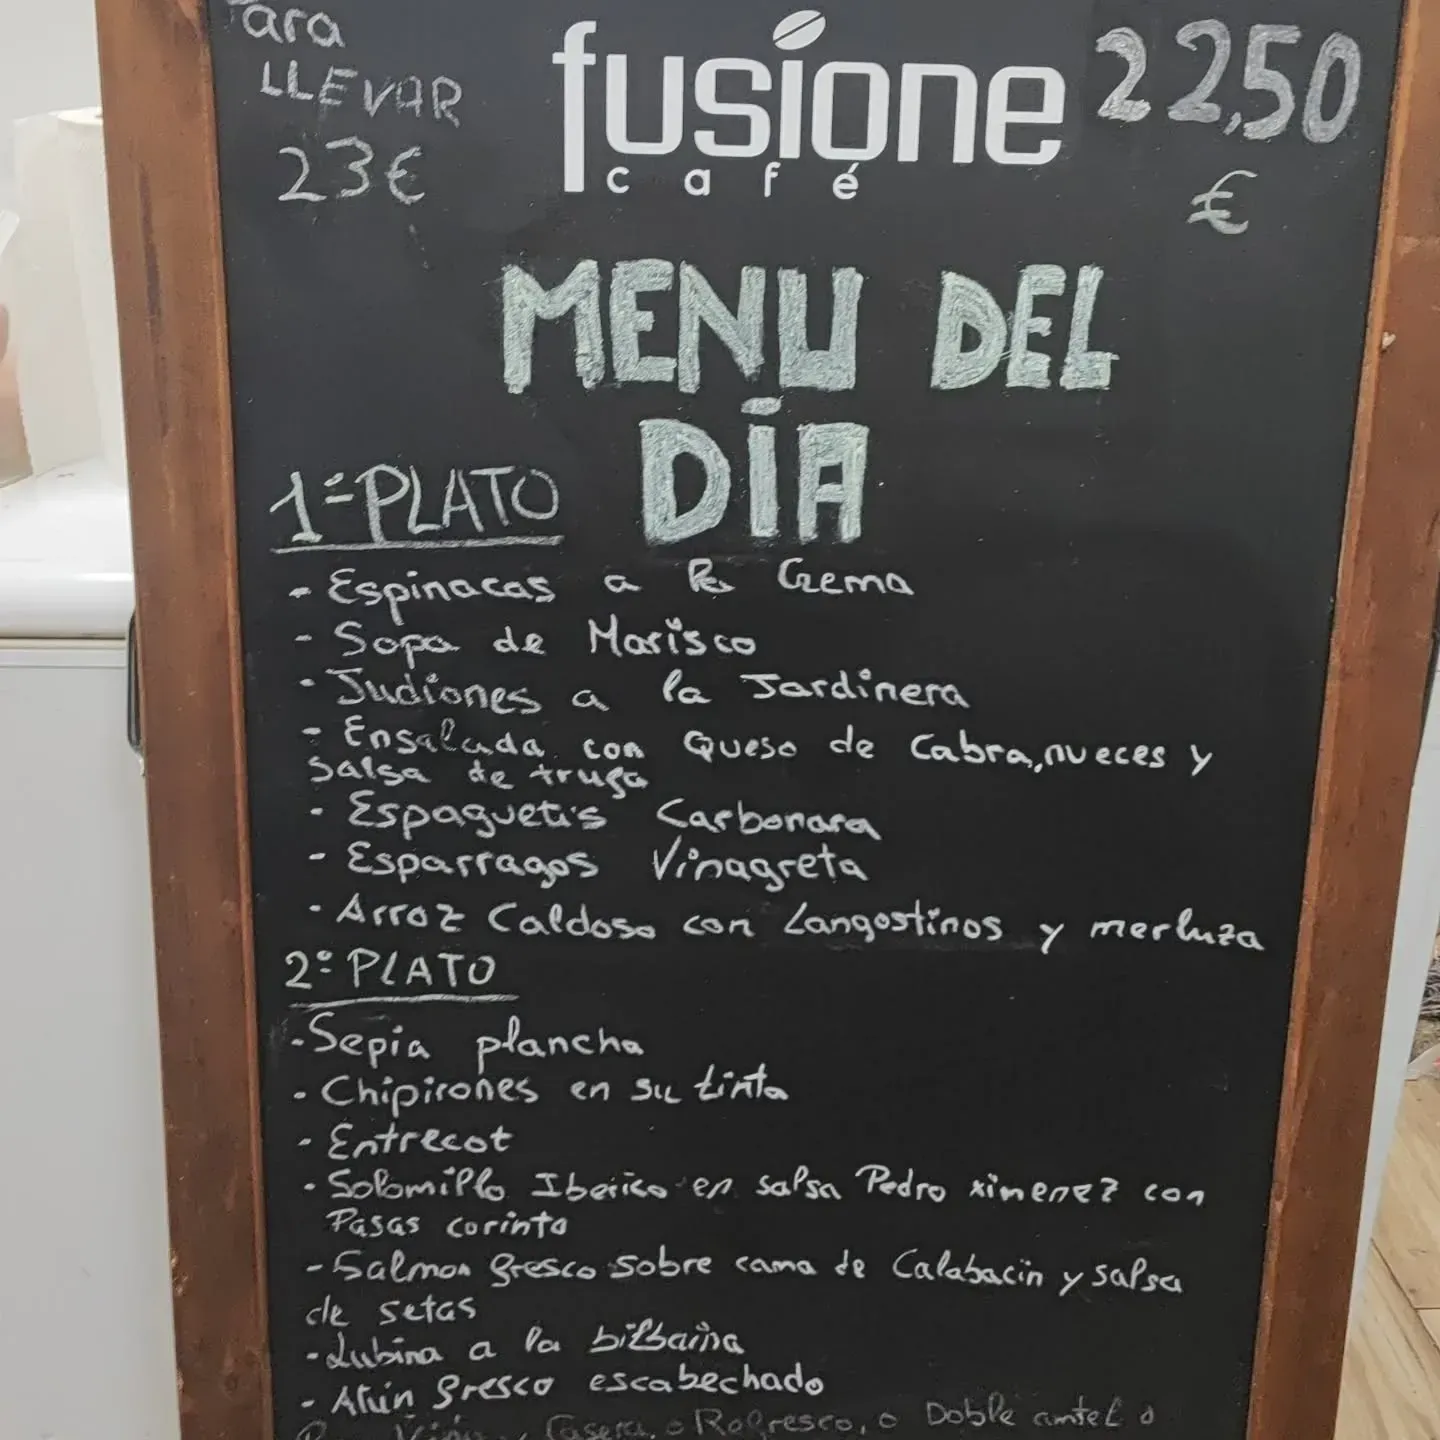 Para
LLEVAR
23€
fusione
café
22,50
€
MENU DEL
DÍA
1º PLATO
- Espinacas a la Crema
- Sopa de Marisco
- Judiones a la Jardinera
- Ensalada con Queso de Cabra, nueces y
salsa de trufa
- Espaguetis Carbonara
- Esparragos Vinagreta
- Arroz Caldoso con Langostinos y merluza
2º PLATO
- Sepia plancha
- Chipirones en su tinta
- Entrecot
- Solomillo Iberico en salsa Pedro ximenez con
Pasas corinto
- Salmon fresco sobre cama de Calabacin y salsa
de setas
- Lubina a la bilbaina
- Atún fresco escabechado
Casera, o Refresco, o Doble